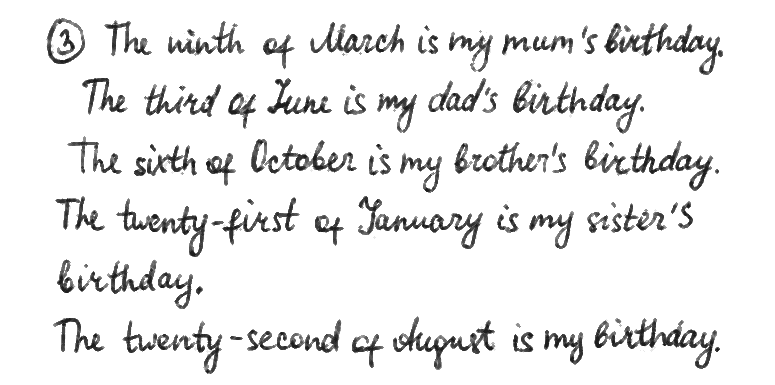 ③ The ninth of March is my mum's birthday.
The third of June is my dad's birthday.
The sixth of October is my brother's birthday.
The twenty-first of January is my sister's
birthday.
The twenty-second of August is my birthday.